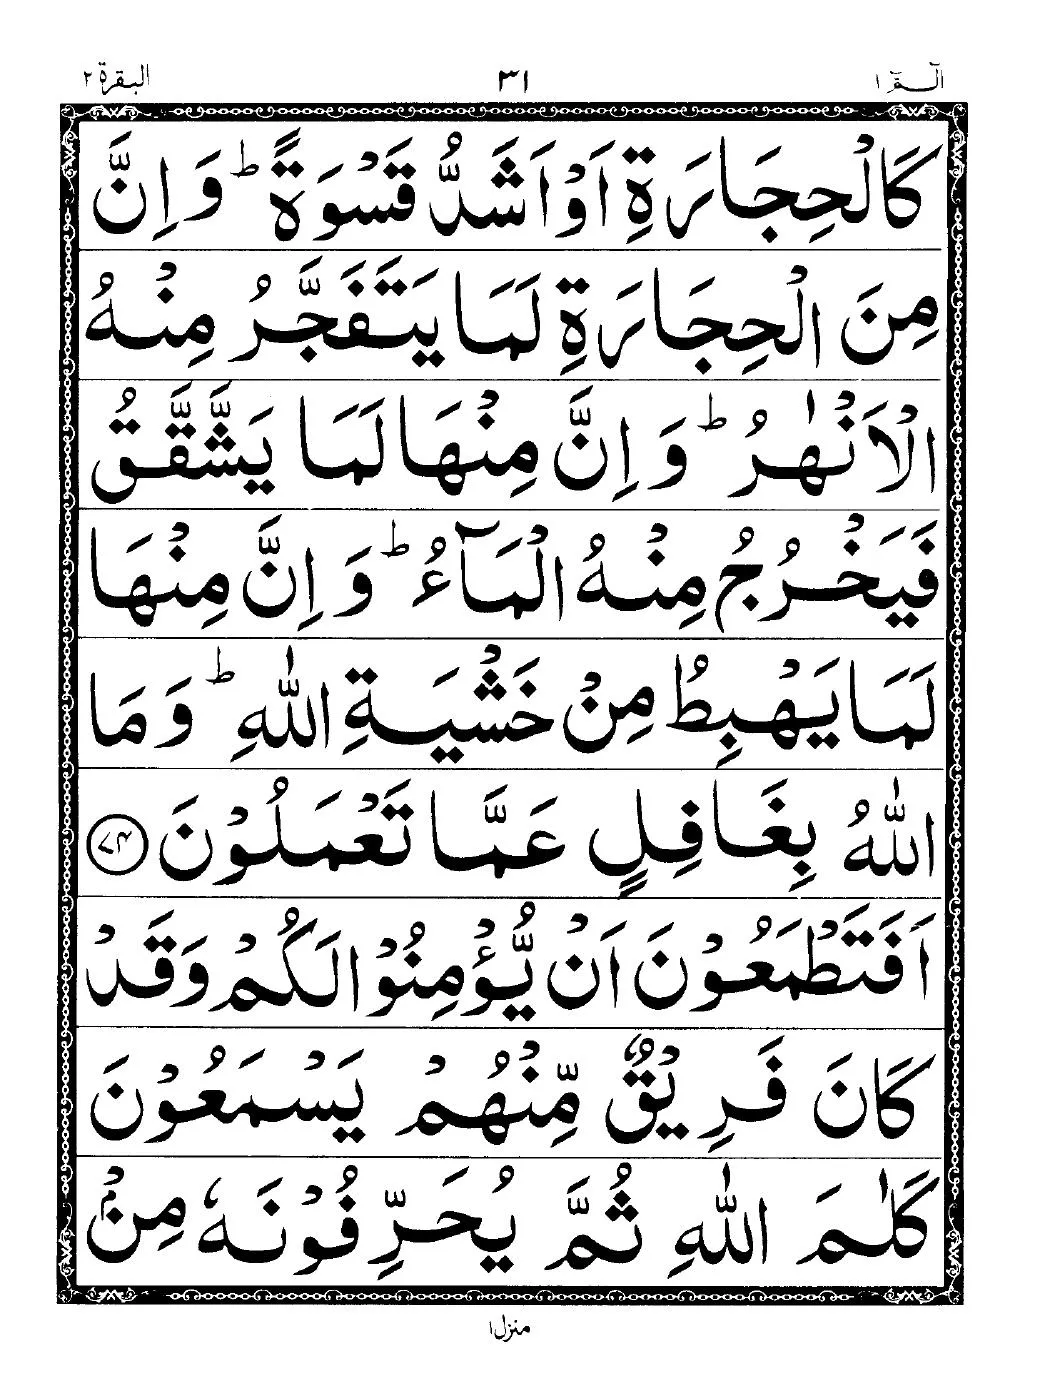 الٓمّٓ ١ ٣١ البقرة ٢
كَالْحِجَارَةِ اَوْ اَشَدُّ قَسْوَةً ؕ وَ اِنَّ
مِنَ الْحِجَارَةِ لَمَا يَتَفَجَّرُ مِنْهُ
الْاَنْهٰرُ ؕ وَ اِنَّ مِنْهَا لَمَا يَشَّقَّقُ
فَيَخْرُجُ مِنْهُ الْمَآءُ ؕ وَ اِنَّ مِنْهَا
لَمَا يَهْبِطُ مِنْ خَشْيَةِ اللّٰهِ ؕ وَ مَا
اللّٰهُ بِغَافِلٍ عَمَّا تَعْمَلُوْنَ ﴿۷۴﴾
اَفَتَطْمَعُوْنَ اَنْ يُّؤْمِنُوْا لَكُمْ وَقَدْ
كَانَ فَرِيْقٌ مِّنْهُمْ يَسْمَعُوْنَ
كَلٰمَ اللّٰهِ ثُمَّ يُحَرِّفُوْنَهٗ مِنْۢ
منزل ١